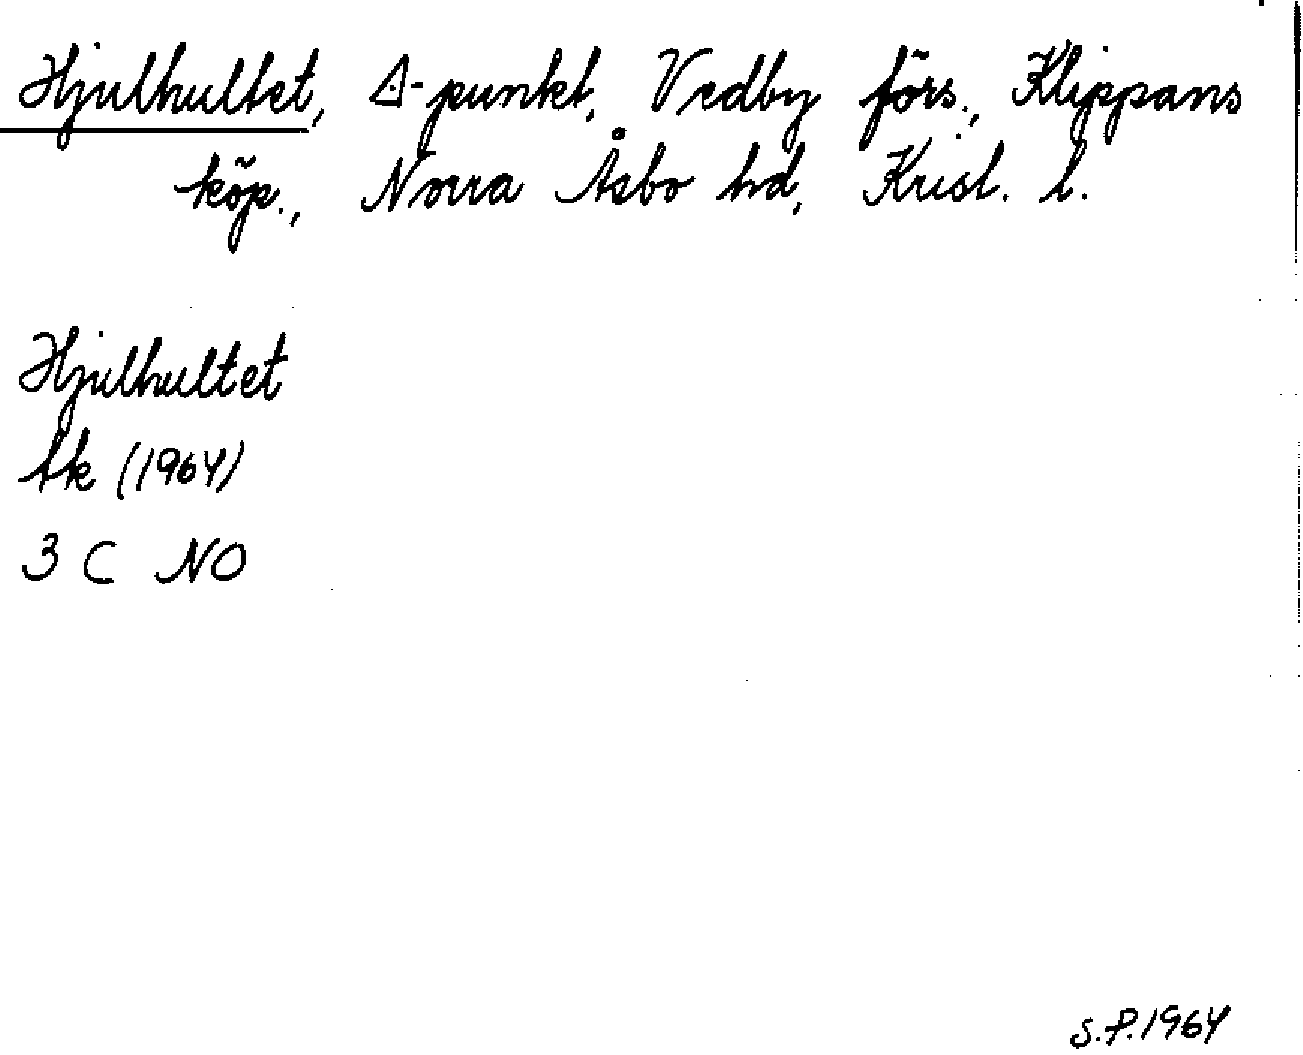 Hjulhultet, ∆-punkt, Vedby förs., Klippans
köp., Norra Åsbo hd, Krist. l.
Hjulhultet
tk (1964)
3 C NO
S.P.1964